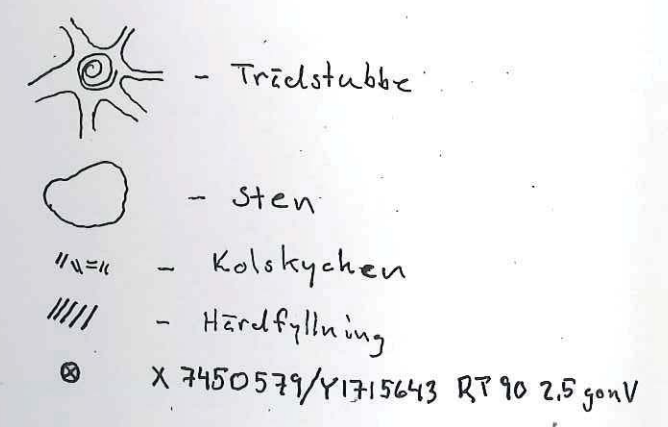 - Trädstubbe
- Sten
- Kolstycken
- Härdfyllning
X 7450579/Y1715643 RT 90 2,5 gonV